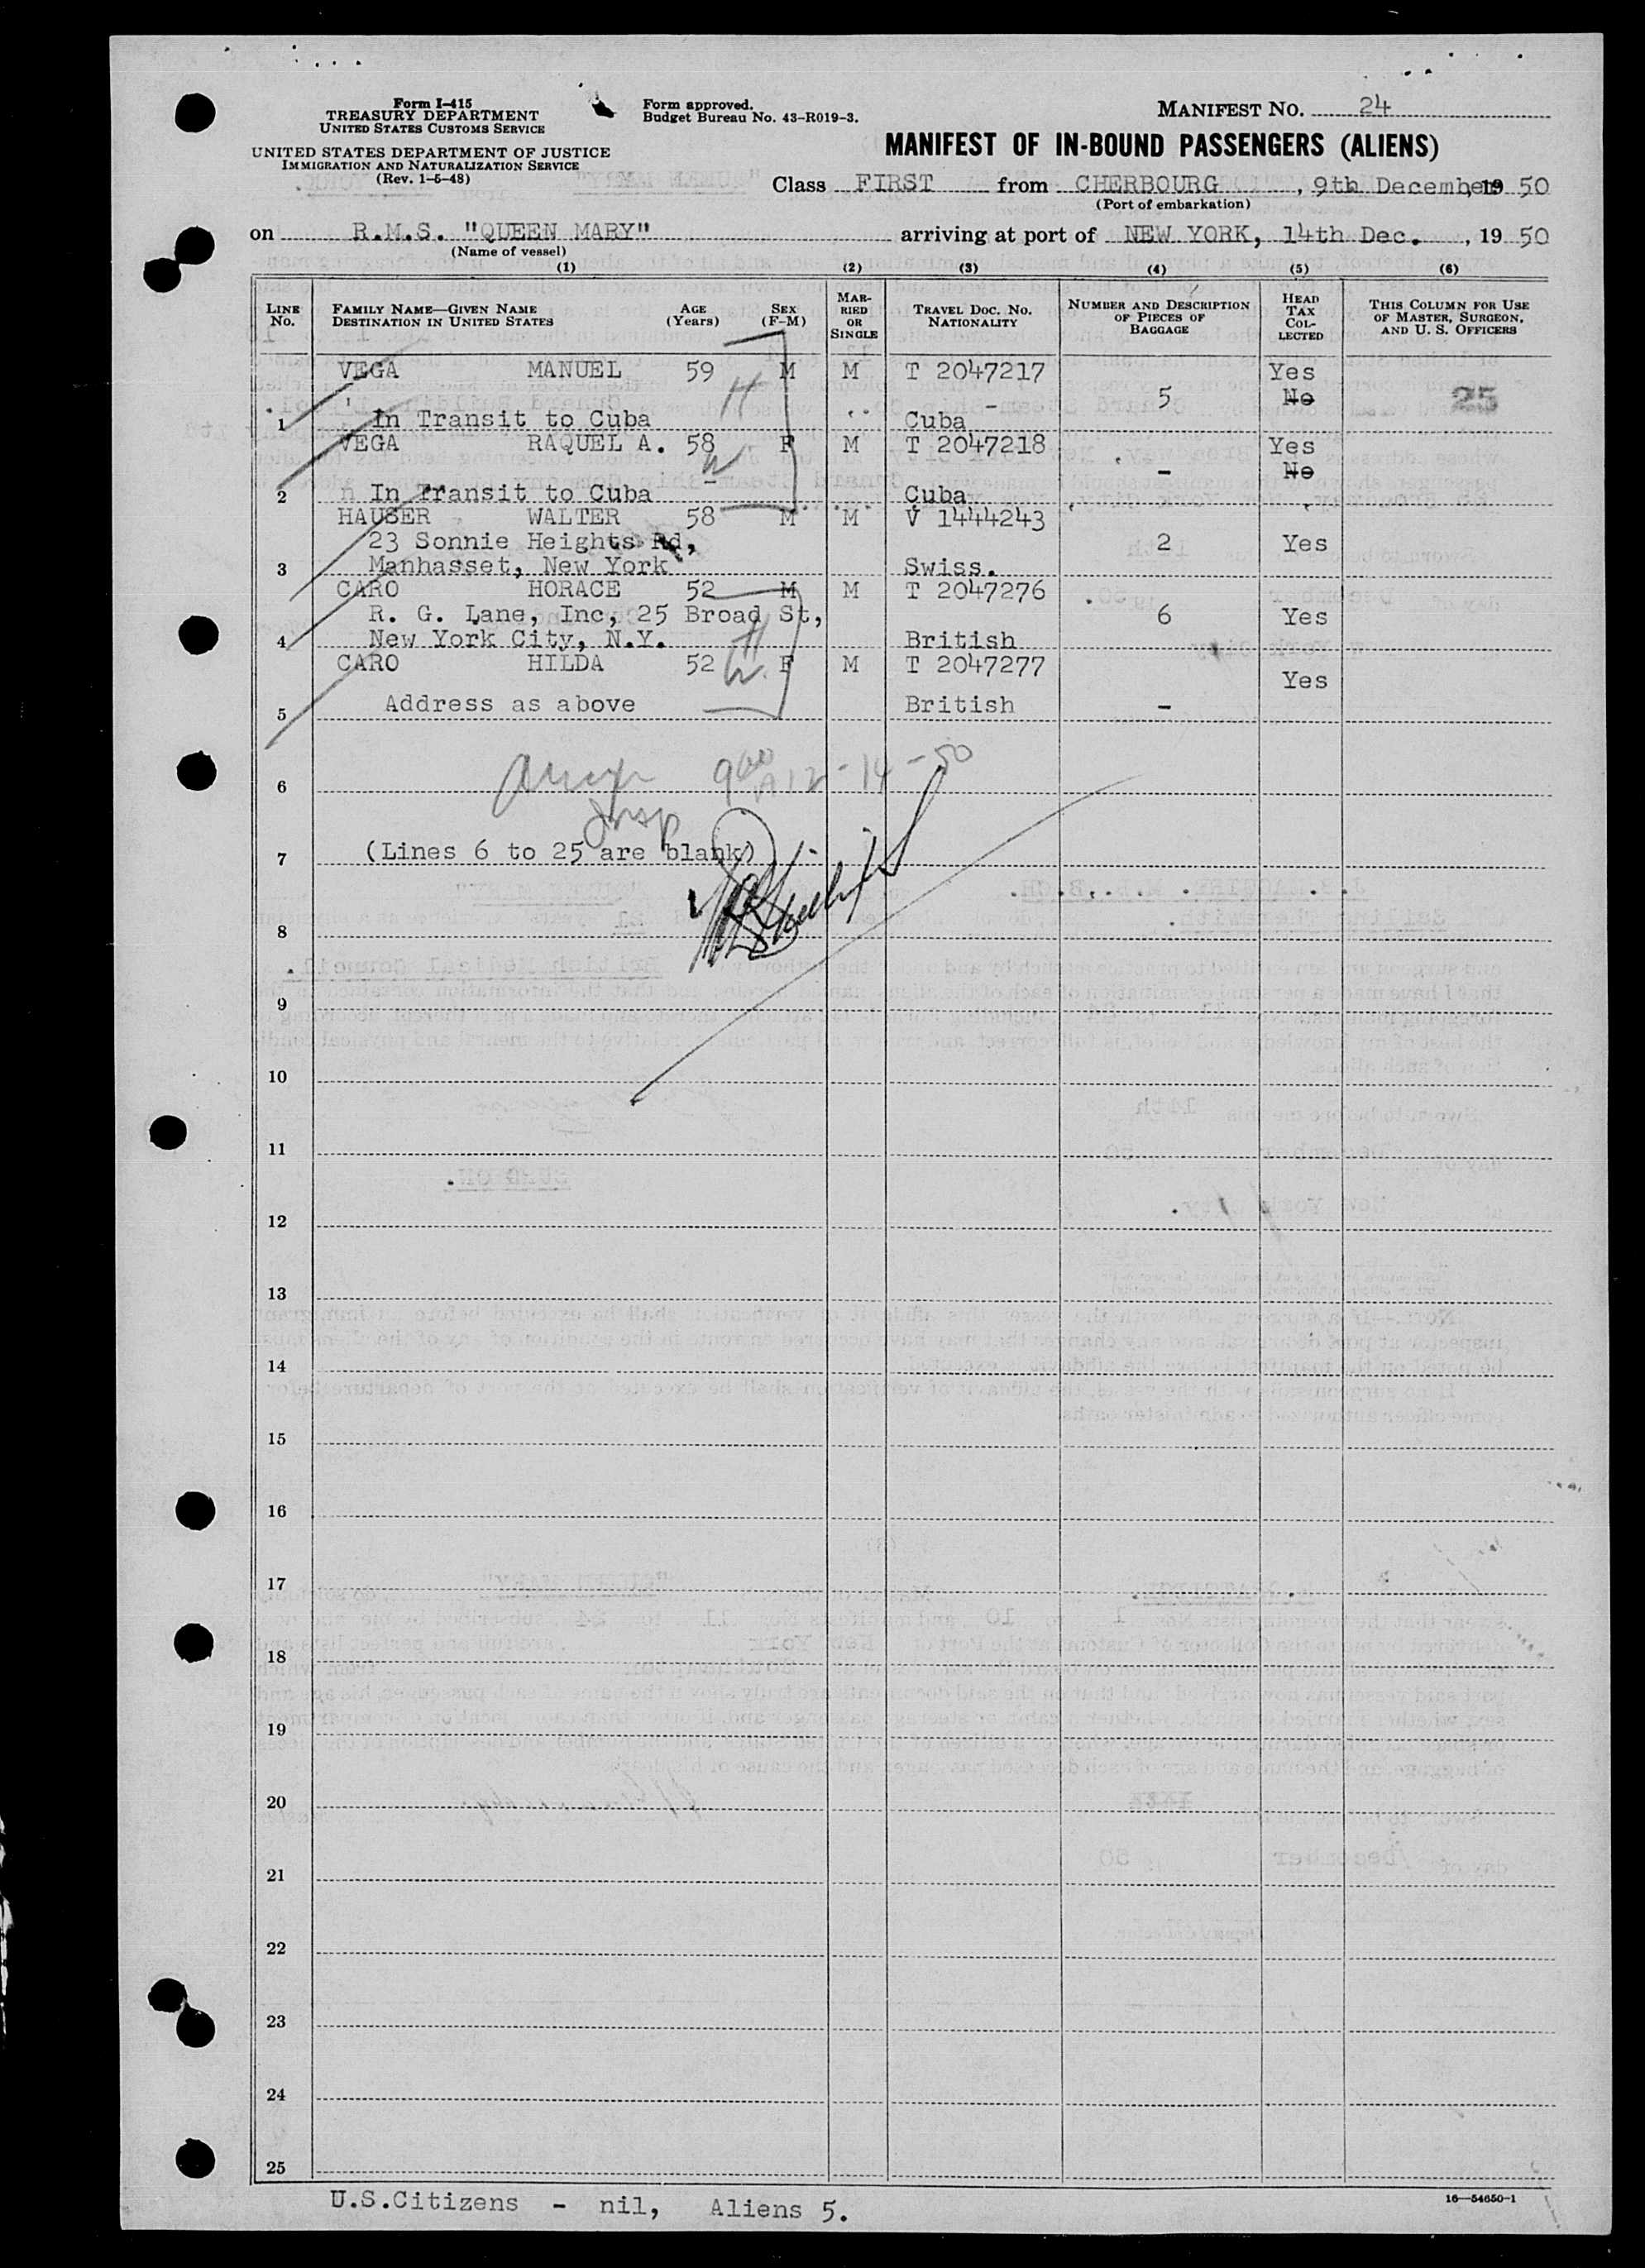 Form I-415
TREASURY DEPARTMENT
UNITED STATES CUSTOMS SERVICE
UNITED STATES DEPARTMENT OF JUSTICE
IMMIGRATION AND NATURALIZATION SERVICE
(Rev. 1-5-48)
Form approved.
Budget Bureau No. 43-R019-3.
MANIFEST NO. 24
MANIFEST OF IN-BOUND PASSENGERS (ALIENS)
Class FIRST from CHERBOURG, 9th December, 19 50
(Port of embarkation)
on R.M.S. "QUEEN MARY" arriving at port of NEW YORK, 14th Dec., 19 50
(Name of vessel)
(1) (2) (3) (4) (5) (6)
LINE No. FAMILY NAME—GIVEN NAME DESTINATION IN UNITED STATES AGE (Years) SEX (F-M) MARRIED OR SINGLE TRAVEL DOC. NO. NATIONALITY NUMBER AND DESCRIPTION OF PIECES OF BAGGAGE HEAD TAX COLLECTED THIS COLUMN FOR USE OF MASTER, SURGEON, AND U. S. OFFICERS
VEGA MANUEL 59 M M T 2047217 Yes
H 5 No 25
1 In Transit to Cuba Cuba
VEGA RAQUEL A. 58 F M T 2047218 Yes
W - No
2 In Transit to Cuba Cuba
HAUSER WALTER 58 M M V 1444243
23 Sonnie Heights Rd, 2 Yes
3 Manhasset, New York Swiss.
CARO HORACE 52 M M T 2047276
R. G. Lane, Inc, 25 Broad St, 6 Yes
4 New York City, N.Y. H British
CARO HILDA 52 W. F M T 2047277
Yes
5 Address as above British -
6 9 00 A 12-14-50
Insp
7 (Lines 6 to 25 are blank)
8
9
10
11
12
13
14
15
16
17
18
19
20
21
22
23
24
25
U.S.Citizens - nil, Aliens 5.
16—54650-1